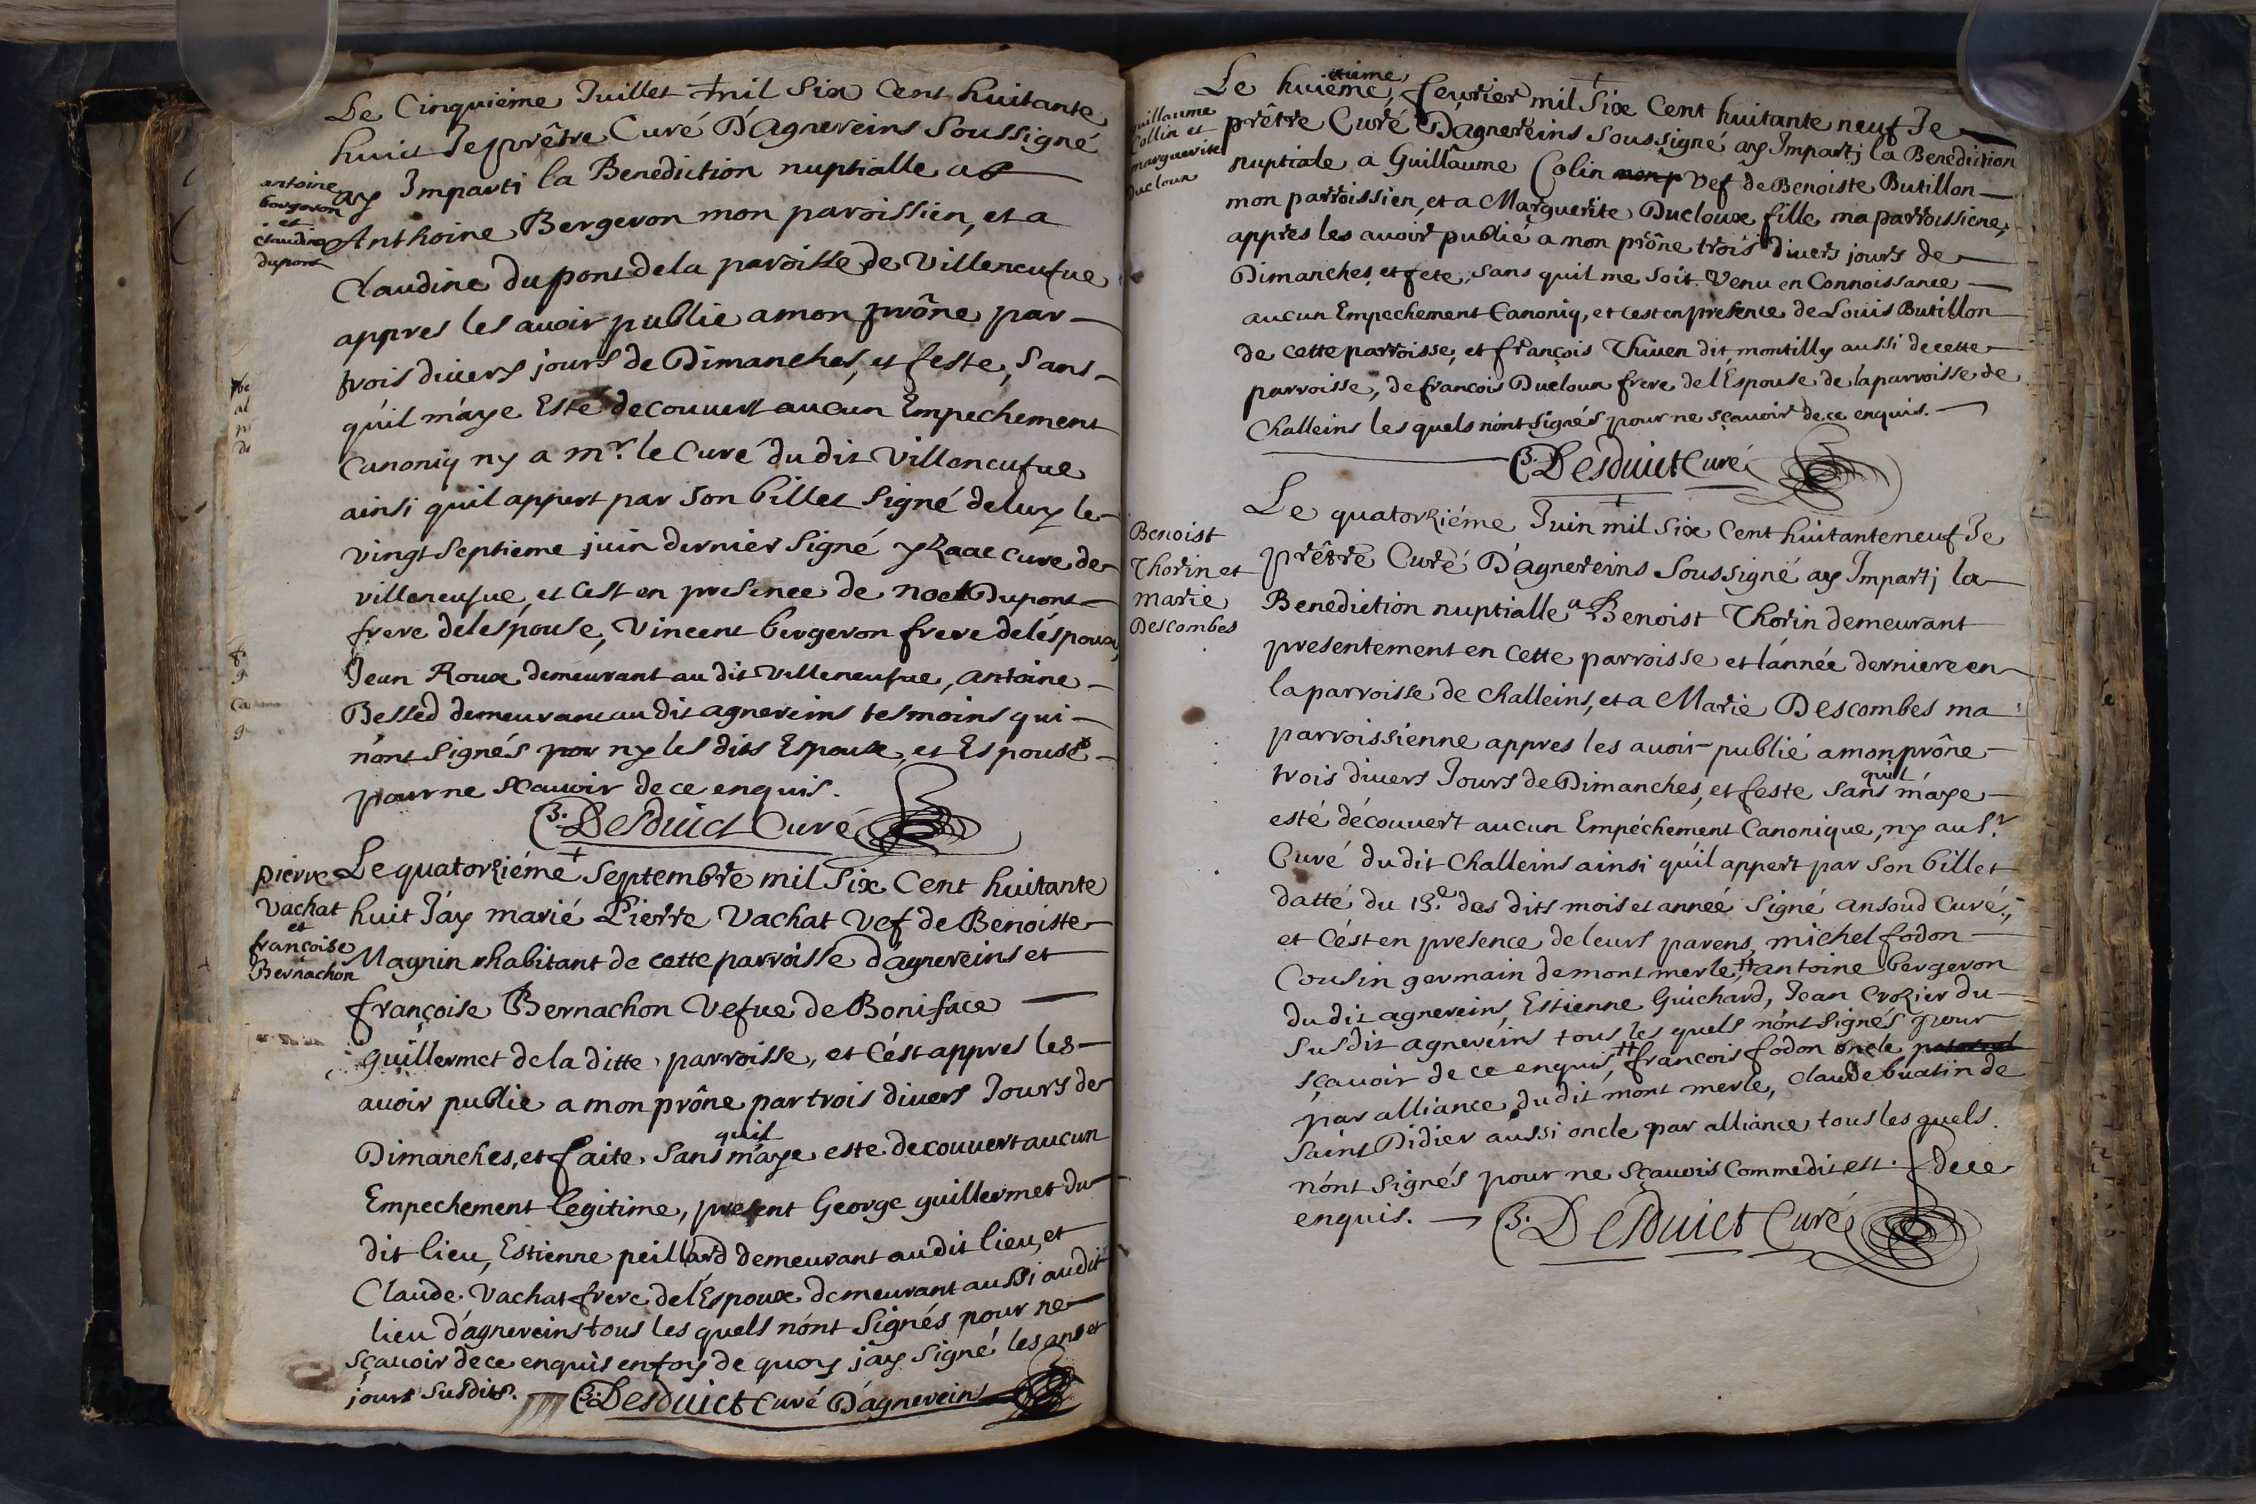 Le Cinquiéme Juillet mil Six Cent huitante
huict Je prêtre Curé D'Agnereins Soussigné
antoine
bergeron
et
claudine
dupont
ay Imparti la Benediction nuptialle a
Anthoine Bergeron mon paroissien, et a
Claudine dupont de la paroisse de Villeneufue
appres les auoir publie a mon prône par
trois diuers jours de Dimanches, et feste, Sans
qu'il m'aye Esté decouuert aucun Empechement
Canoniq ny a mr. le Curé du dit Villeneufue
ainsi quil appert par Son billet Signé de luy le
vingt Septieme juin dernier Signé yzaac cure de
villeneufue, et C'est en presence de noel Dupont
frere de lespouse, Vincent bergeron frere de léspoux,
Jean Roux demeurant au dit Villeneufue, antoine
Bessed demeurant au dit agnereins tesmoins qui
n'ont Signés ny les dits Espoux, et Espouse
pour ne scauoir de ce enquis.
B. Desduict Curé
pierre
Vachat
et
françoise
Bernachon
Le quatorziéme Septembre mil Six Cent huitante
huit J'ay marié Pierre Vachat Vef de Benoiste
Magnin habitant de cette parroisse d'agnereins et
françoise Bernachon Vefue de Boniface
guillermet de la ditte parroisse, et C'ést appres les
auoir publie a mon prône par trois diuers Jours de
Dimanches, et faite, Sans quil m'aye este decouuert aucun
Empechement legitime, present George guillermet du
dit lieu, Estienne peillard demeurant au dit lieu, et
Claude Vachat frere de l'Espoux demeurant aussi au dit
lieu d'agnereins tous les quels n'ont Signés pour ne
sçauoir de ce enquis en foy de quoy j'ay Signé les ans et
jours Susdits. B. Desduict Curé D'agnereins
Le huictieme, feurier mil Six Cent huitante neuf Je
Guillaume
Collin et
marguerite
Ducloux
prêtre Curé D'agnereins Soussigné ay Impartj la Benediction
nuptiale a Guillaume Colin Vef de Benoiste Butillon
mon parroissien, et a Marguerite Ducloux fille, ma parroissiene,
appres les auoir publié a mon prône trois diuers jours de
Dimanches, et fete, Sans quil me Soit Venu en Connoissance
aucun Empechement Canoniq, et cest en presence de Louis Butillon
de cette parroisse, et françois Thiuen dit montilly aussi de cette
parroisse, de francois Ducloux frere de l'Espouse de la parroisse de
Challeins les quels n'ont Signés pour ne sçauoir de ce enquis.
B. Desduict Curé
Benoist
Thorin et
marie
Descombes
Le quatorziéme Juin mil Six Cent huitante neuf Je
prêtre Curé D'agnereins Soussigné ay Impartj la
Benediction nuptialle a Benoist Thorin demeurant
presentement en cette parroisse et l'année derniere en
la parroisse de Challeins, et a Marie Descombes ma
parroissienne appres les auoir publié a mon prône
trois diuers Jours de Dimanches, et feste Sans quil m'aye
esté découuert aucun Empéchement Canonique, ny au Sr.
Curé du dit Challeins ainsi qu'il appert par Son billet
datté du 13.e des dits mois et année Signé ansoud Curé,
et C'ést en presence de leurs parens, michel fodon
Cousin germain de mont merle, # antoine bergeron
du dit agnereins, Estienne Guichard, Jean Crozier du
Susdit agnereins tous les quels n'ont Signés pour
sçauoir de ce enquis, # francois fodon oncle
par alliance du dit mont merle, Claude buatin de
Saint Didier aussi oncle par alliance, tous les quels
n'ont Signés pour ne sçauoir Comme dit est. de ce
enquis. B. Desduict Curé